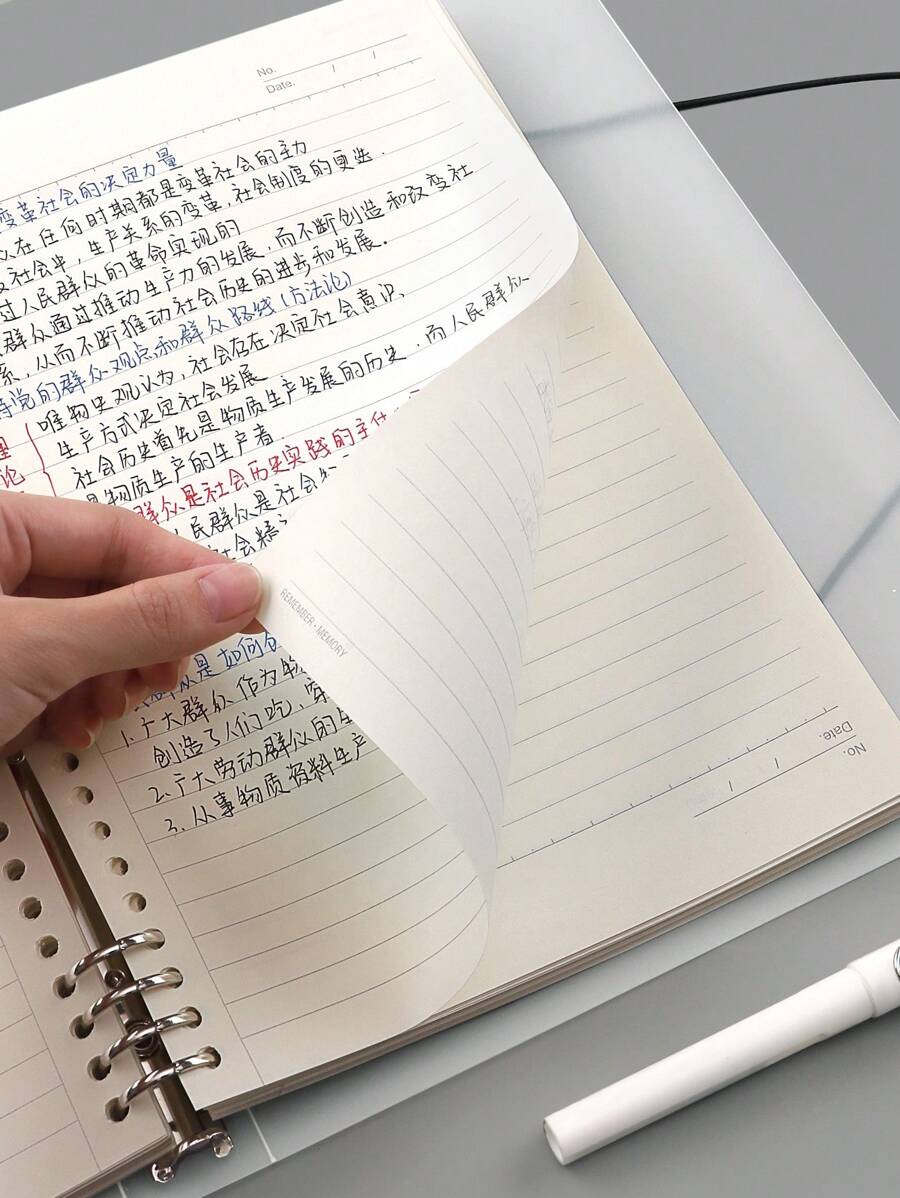 No.
Date. / /
变革社会的决定力量
众在任何时期都是变革社会的主力
社会中，生产关系的变革，社会制度的更迭.
过人民群众的革命实现的
群众通过推动生产力的发展，而不断创造和改变社
系，从而不断推动社会历史的进步和发展.
持党的群众观点和群众路线(方法论)
唯物史观认为，社会存在决定社会意识，
生产方式决定社会发展
社会历史首先是物质生产发展的历史，而人民群众
是物质生产的生产者
论
群众是社会历史实践的主体
民群众是社会
社会精
群众是如何
1. 广大群众作为物
创造了人们吃、穿
2. 广大劳动群众的生
3. 从事物质资料生产
REMEMBER·MEMORY
No.
Date. / /